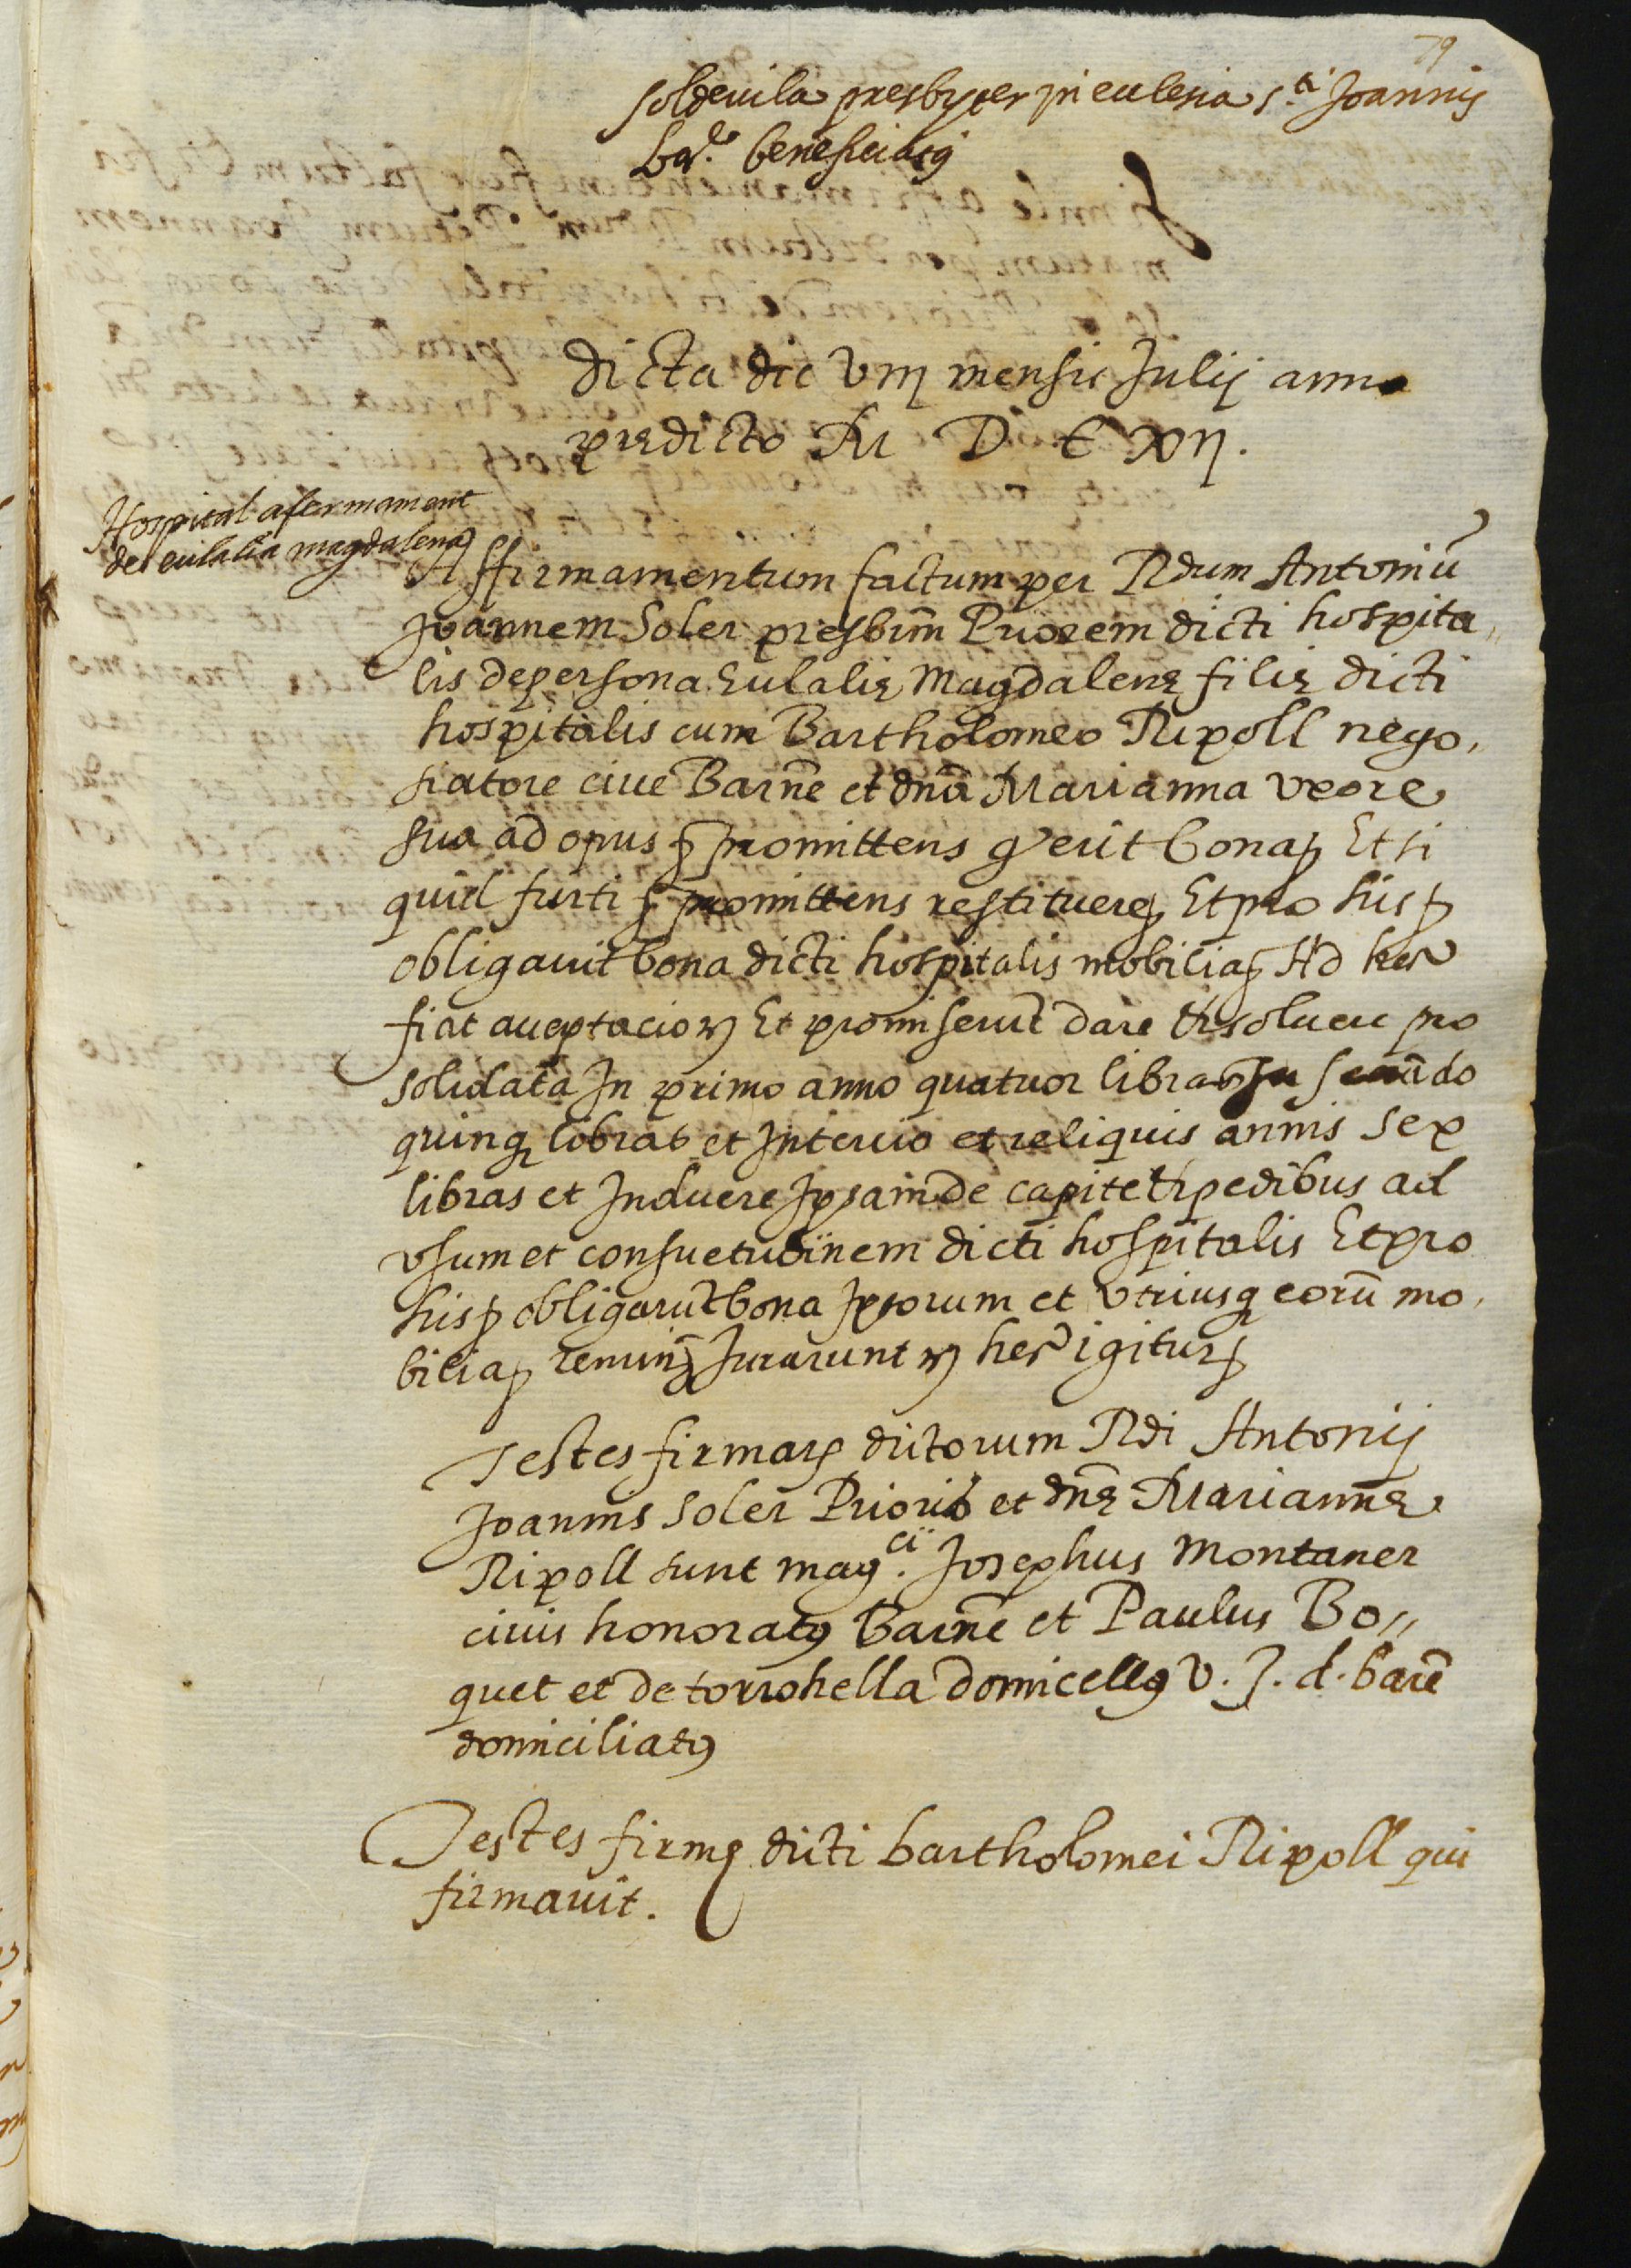 79
soldeuila presbyter in ecclesia s.ti Joannis
beneficiatus
dicta die Viij mensis Julij anno
predicto M D C xij.
Hospital afermament
de eulalia magdalena
Affirmamentum factum per Rdum Antoniū
Joannem Soler presbm̄ Priorem dicti hospita„
lis de persona Eulalię Magdalenę filię dicti
hospitalis cum Bartholomeo Ripoll nego,
siatore ciue Barn̄e et dn̄a Marianna vxore
sua ad opus promittens erit bona Et si
quid furti promittens restituere Et pro his
obligauit bona dicti hospitalis mobilia Ad hec
fiat acceptacio Et promiserūt dare et soluere pro
solidata In primo anno quatuor libras In secūdo
quinq libras et In tercio et reliquis annis sex
libras et Induere Ipsam de capite et pedibus ad
vsum et consuetudinem dicti hospitalis Et pro
his obligarūt bona Ipsorum et vtriusq eorū mo,
bilia renun Jurarunt hec igitur
Testes firmar dictorum Rdi Antonij
Joannis Soler Prioris et dn̄ę Mariannę
Ripoll sunt mag.ci Josephus Montaner
ciuis honoratus Barn̄e et Paulus Bo„
quet et de torrohella domicellus V. J. d. barē
domiciliatus
Testes firmę dicti bartholomei Ripoll qui
firmauit.